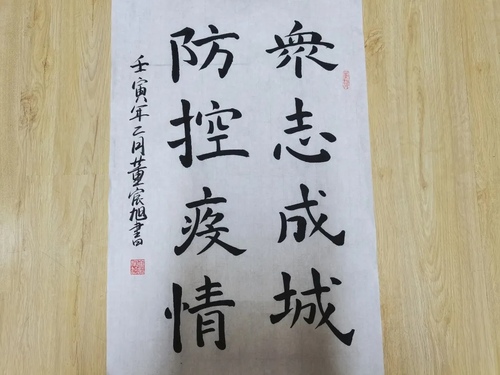 衆志成城
防控疫情
壬寅年二月董宸旭書